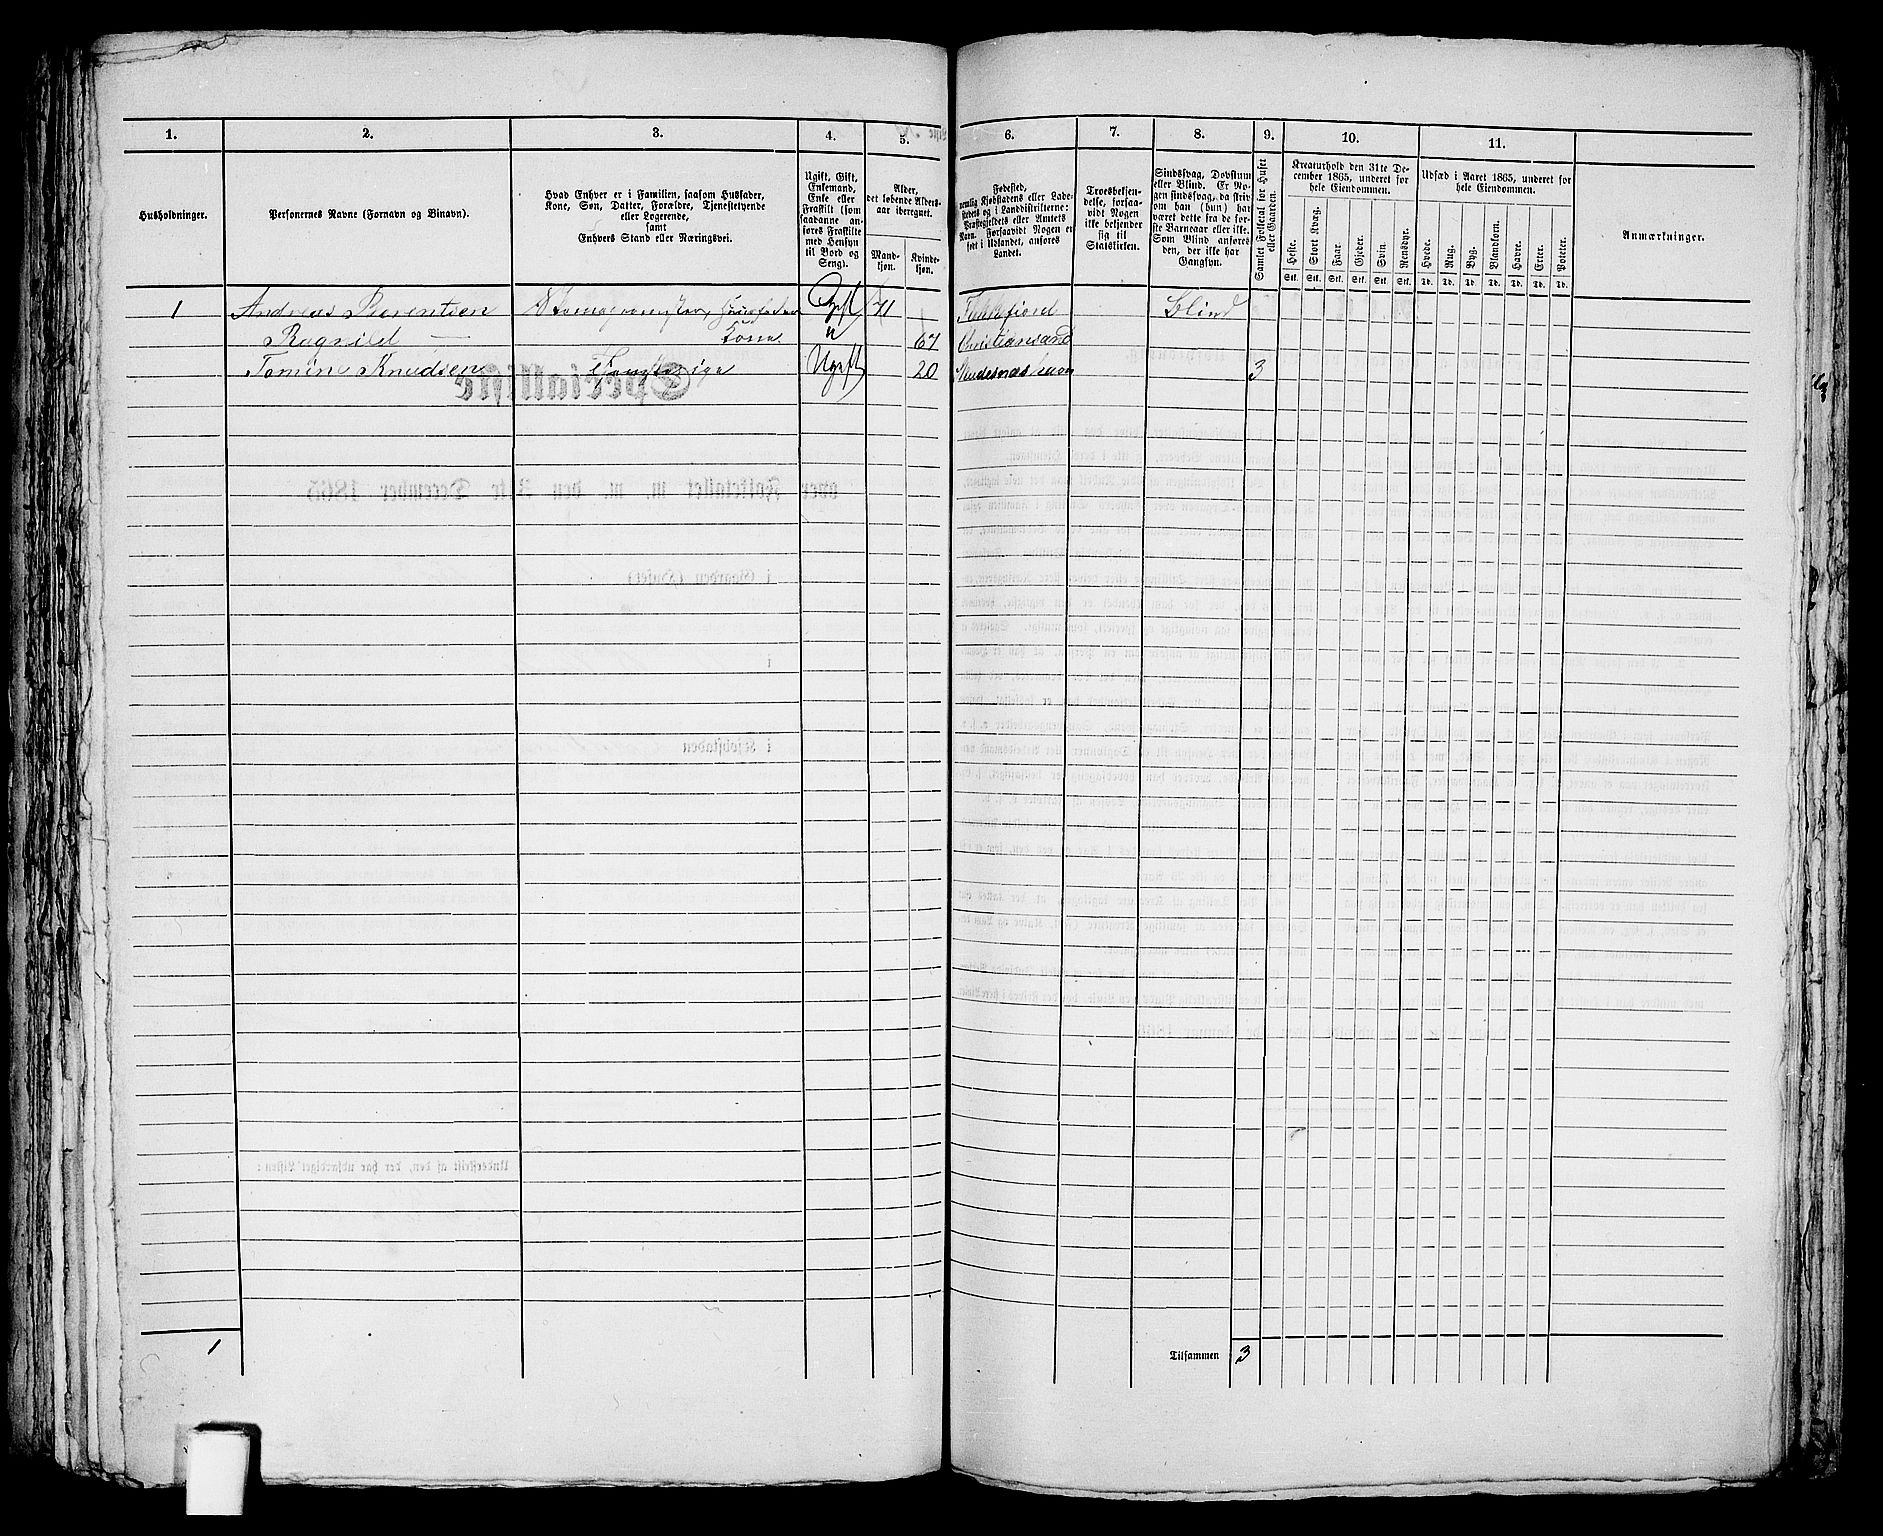 1. 2. 3. 4. 5. 6. 7. 8. 9. 10. 11.
Husholdninger.
Personernes Navne (Fornavn og Binavn).
Hvad Enhver er i Familien, saasom Husfader,
Kone, Søn, Datter, Forældre, Tjenestetyende
eller Logerende,
samt
Enhvers Stand eller Næringsvei.
Ugift, Gift,
Enkemand,
Enke eller
Fraskilt (som
saadanne an-
føres Fraskilte
med Hensyn
til Bord og
Seng).
Alder,
det løbende Alders-
aar iberegnet.
Mand-
kjøn.
Kvinde-
kjøn.
Fødested,
nemlig Kjøbstadens eller Lade-
stedets og i Landdistrikterne:
Præstegjeldets eller Amtets
Navn. Forsaavidt Nogen er
født i Udlandet, anføres
Landet.
Troesbekjen-
delse, forsaa-
vidt Nogen
ikke bekjender
sig til
Statskirken.
Sindssvag, Døvstum
eller Blind. Er No-
gen sindssvag, da skriv
om han (hun) har
været dette fra de før-
ste Barneaar eller ikke.
Som Blind anføres
den, der ikke har
Gangsyn.
Samlet Folketal for Huset
eller Gaarden.
Kreaturhold den 31te De-
cember 1865, underet for
hele Eiendommen.
Heste. Stort Kvæg. Faar. Gjeder. Svin. Rensdyr.
Stk. Stk. Stk. Stk. Stk. Stk.
Udsæd i Aaret 1865, underet for
hele Eiendommen.
Hvede. Rug. Byg. Blandkorn. Havre. Erter. Poteter.
Td. Td. Td. Td. Td. Td. Td.
Anmærkninger.
1 Andreas Berentsen Skomagermester, Husfader Gift 71 Flekkefjord Blind
Ragnild — Kone " 67 Christiansand
Tomine Knudsen Ugift 20 Skudesnæshavn 3
1
Tilsammen 3